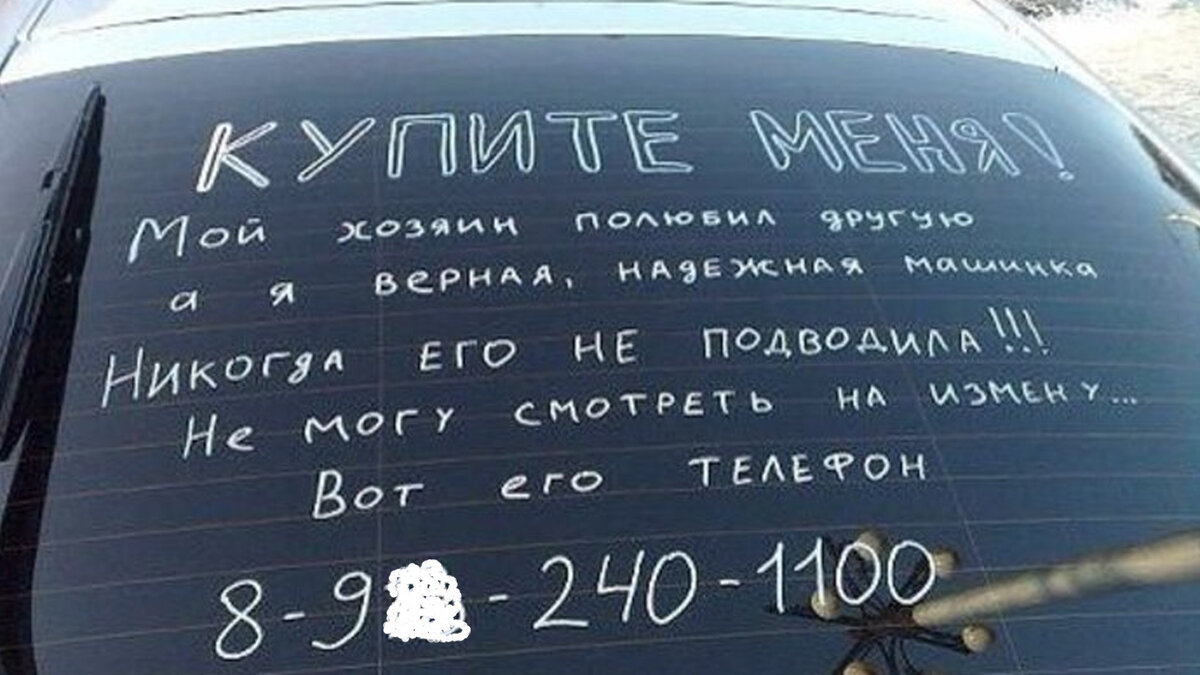 КУПИТЕ МЕНЯ!
Мой хозяин полюбил другую
а я верная, надежная машинка
Никогда его не подводила!!!
Не могу смотреть на измену...
Вот его телефон
8-9 -240-1100